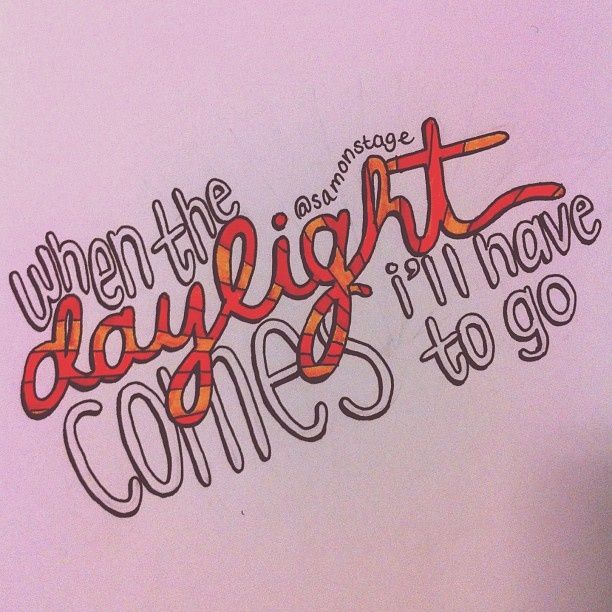 when the
@samonstage
daylight
comes
i'll have
to go